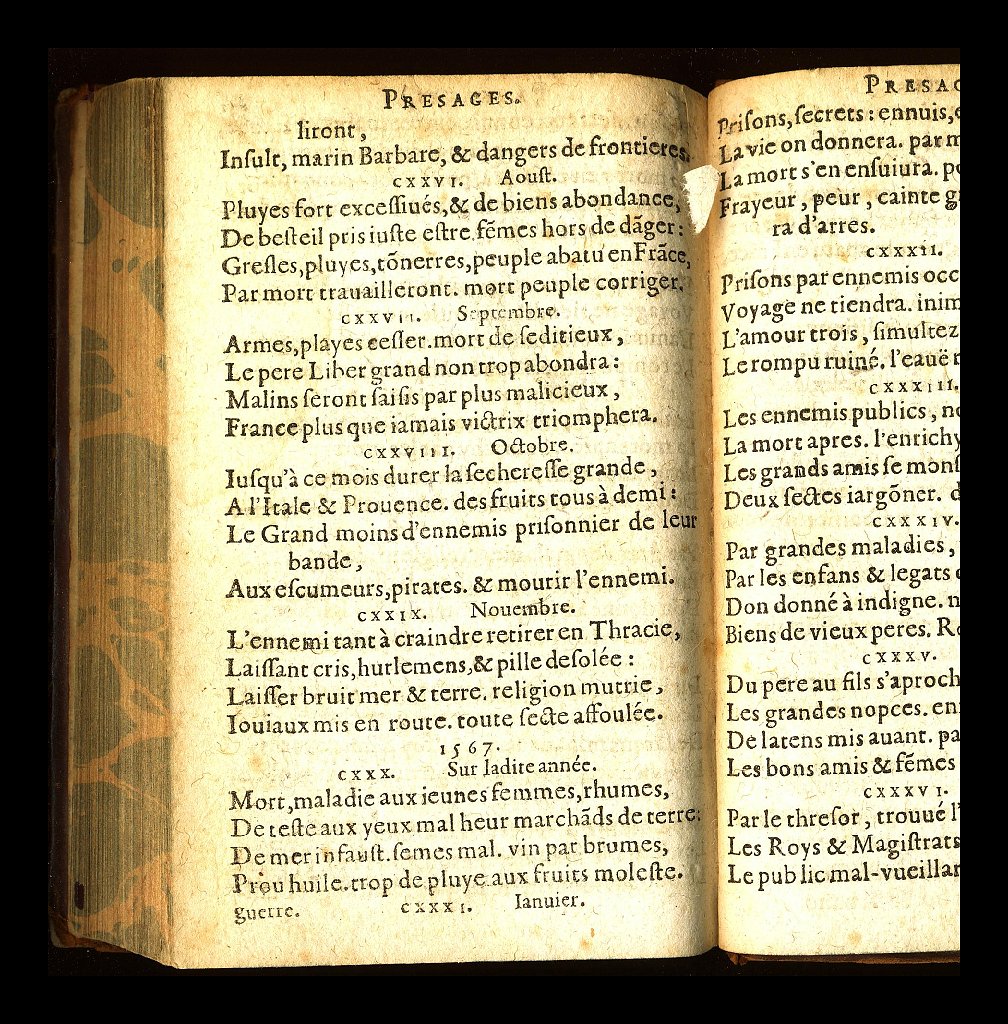 PRESAGES.
ſiront,
Inſult, marin Barbare, & dangers de frontieres.
CXXVI. Aouſt.
Pluyes fort exceſſiués, & de biens abondance,
De beſteil pris iuſte eſtre. fẽmes hors de dãger:
Greſles, pluyes, tõnerres, peuple abatu en Frãce,
Par mort trauailleront. mort peuple corriger.
CXXVII. Septembre.
Armes, playes ceſſer. mort de ſeditieux,
Le pere Liber grand non trop abondra:
Malins ſeront ſaiſis par plus malicieux,
France plus que iamais victrix triomphera.
CXXVIII. Octobre.
Iuſqu'à ce mois durer la ſechereſſe grande,
A l'Itale & Prouence. des fruits tous à demi:
Le Grand moins d'ennemis priſonnier de leur
bande,
Aux eſcumeurs, pirates. & mourir l'ennemi.
CXXIX. Nouembre.
L'ennemi tant à craindre retirer en Thracie,
Laiſſant cris, hurlemens, & pille deſolée:
Laiſſer bruit mer & terre. religion mutrie,
Iouiaux mis en route. toute ſecte affoulée.
1567.
CXXX. Sur ladite année.
Mort, maladie aux ieunes femmes, rhumes,
De teſte aux yeux mal heur marchãds de terre:
De mer infauſt. ſemes mal. vin par brumes,
Prou huile. trop de pluye. aux fruits moleſte.
guerre. CXXXI. Ianuier.
PRESAG
Priſons, ſecrets: ennuis,
La vie on donnera. par
La mort s'en enſuiura.
Frayeur, peur, cainte
ra d'arres.
CXXXII.
Priſons par ennemis occ
Voyage ne tiendra. inim
L'amour trois, ſimultez
Le rompu ruiné. l'eauë
CXXXIII.
Les ennemis publics,
La mort apres. l'enrichy
Les grands amis ſe monſ
Deux ſectes iargõner.
CXXXIV.
Par grandes maladies,
Par les enfans & legats
Don donné à indigne.
Biens de vieux peres.
CXXXV.
Du pere au fils s'aproch
Les grandes nopces.
De latens mis auant. pa
Les bons amis & fẽmes
CXXXVI.
Par le threſor, trouué l'
Les Roys & Magiſtrats
Le public mal-vueillan